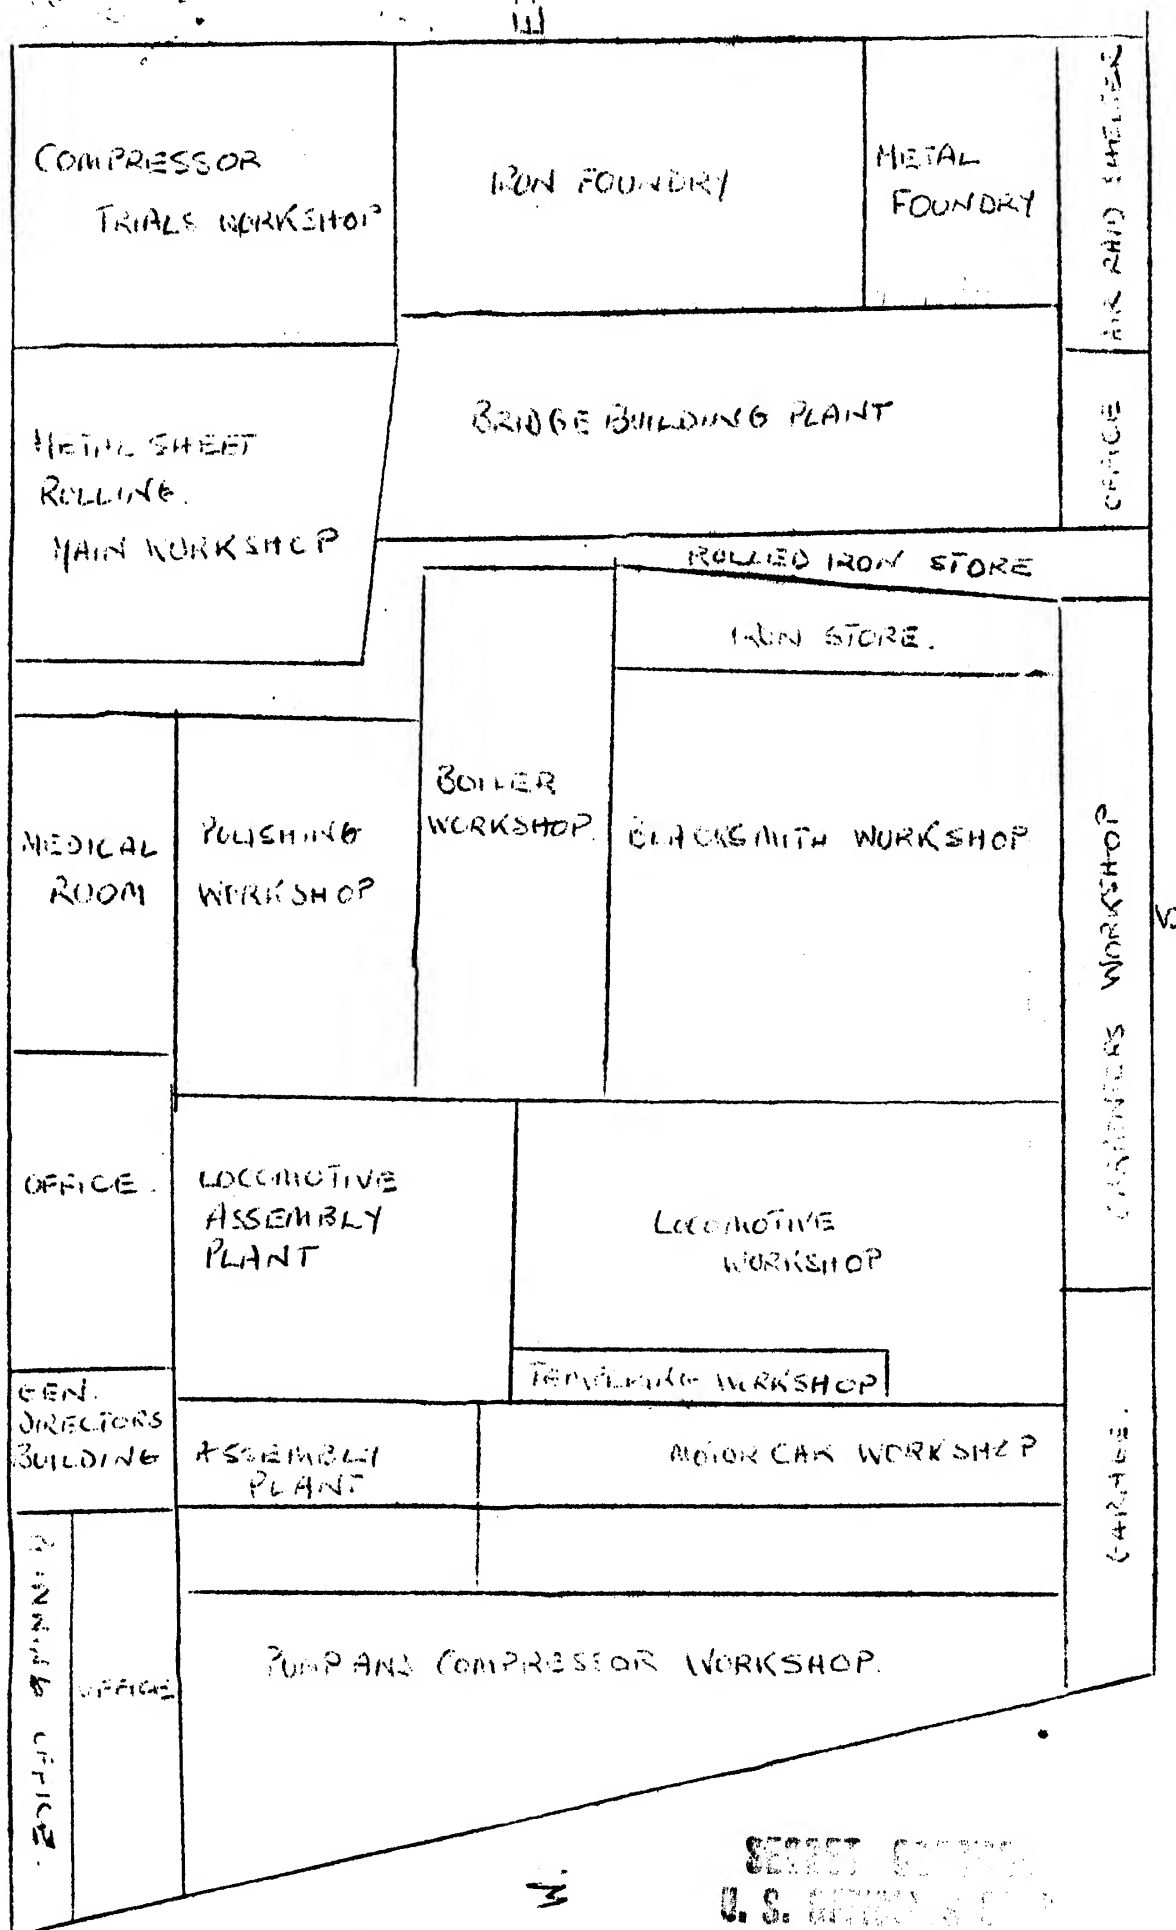 E
COMPRESSOR
TRIALS WORKSHOP
IRON FOUNDRY
METAL
FOUNDRY
AIR RAID SHELTER
METAL SHEET
ROLLING.
MAIN WORKSHOP
BRIDGE BUILDING PLANT
OFFICE
ROLLED IRON STORE
IRON STORE.
MEDICAL
ROOM
POLISHING
WORKSHOP
BOILER
WORKSHOP.
BLACKSMITH WORKSHOP
CARPENTERS WORKSHOP
S
OFFICE.
LOCOMOTIVE
ASSEMBLY
PLANT
LOCOMOTIVE
WORKSHOP
TEMPERING WORKSHOP
GEN.
DIRECTORS
BUILDING
ASSEMBLY
PLANT
MOTOR CAR WORKSHOP
GARAGE.
OFFICE.
OFFICE
PUMP AND COMPRESSOR WORKSHOP.
W.
SECRET
U. S.